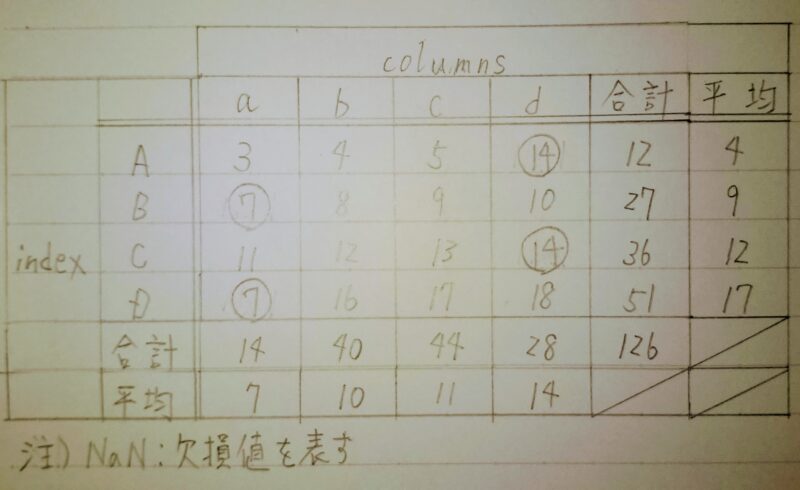 columns
a b c d 合計 平均
A 3 4 5 14 12 4
B 7 8 9 10 27 9
index C 11 12 13 14 36 12
D 7 16 17 18 51 17
合計 14 40 44 28 126
平均 7 10 11 14
注) NaN:欠損値を表す